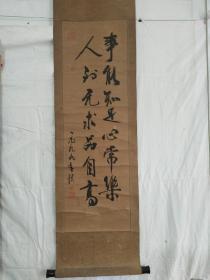 事能知足心常樂
人到无求品自高
一九九九年